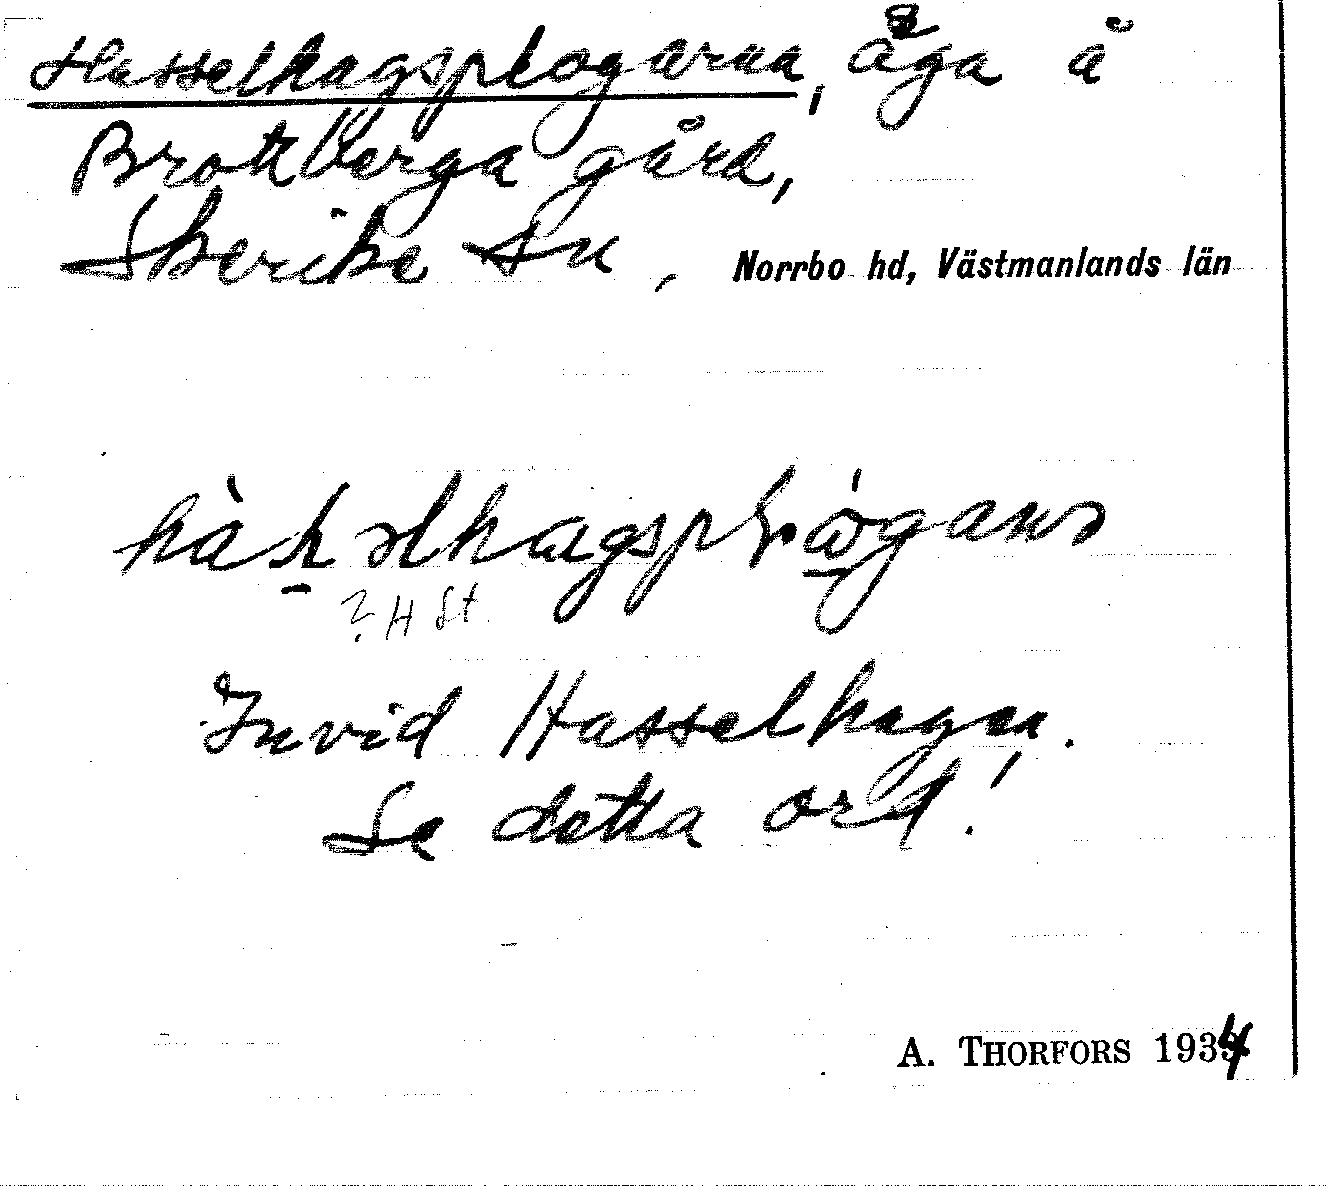 Hasselhagsplogarna, åga å
Brottberga gård,
Skerike sn, Norrbo hd, Västmanlands län
? H St.
Invid Hasselhagen.
Se detta ord!
A. THORFORS 1934